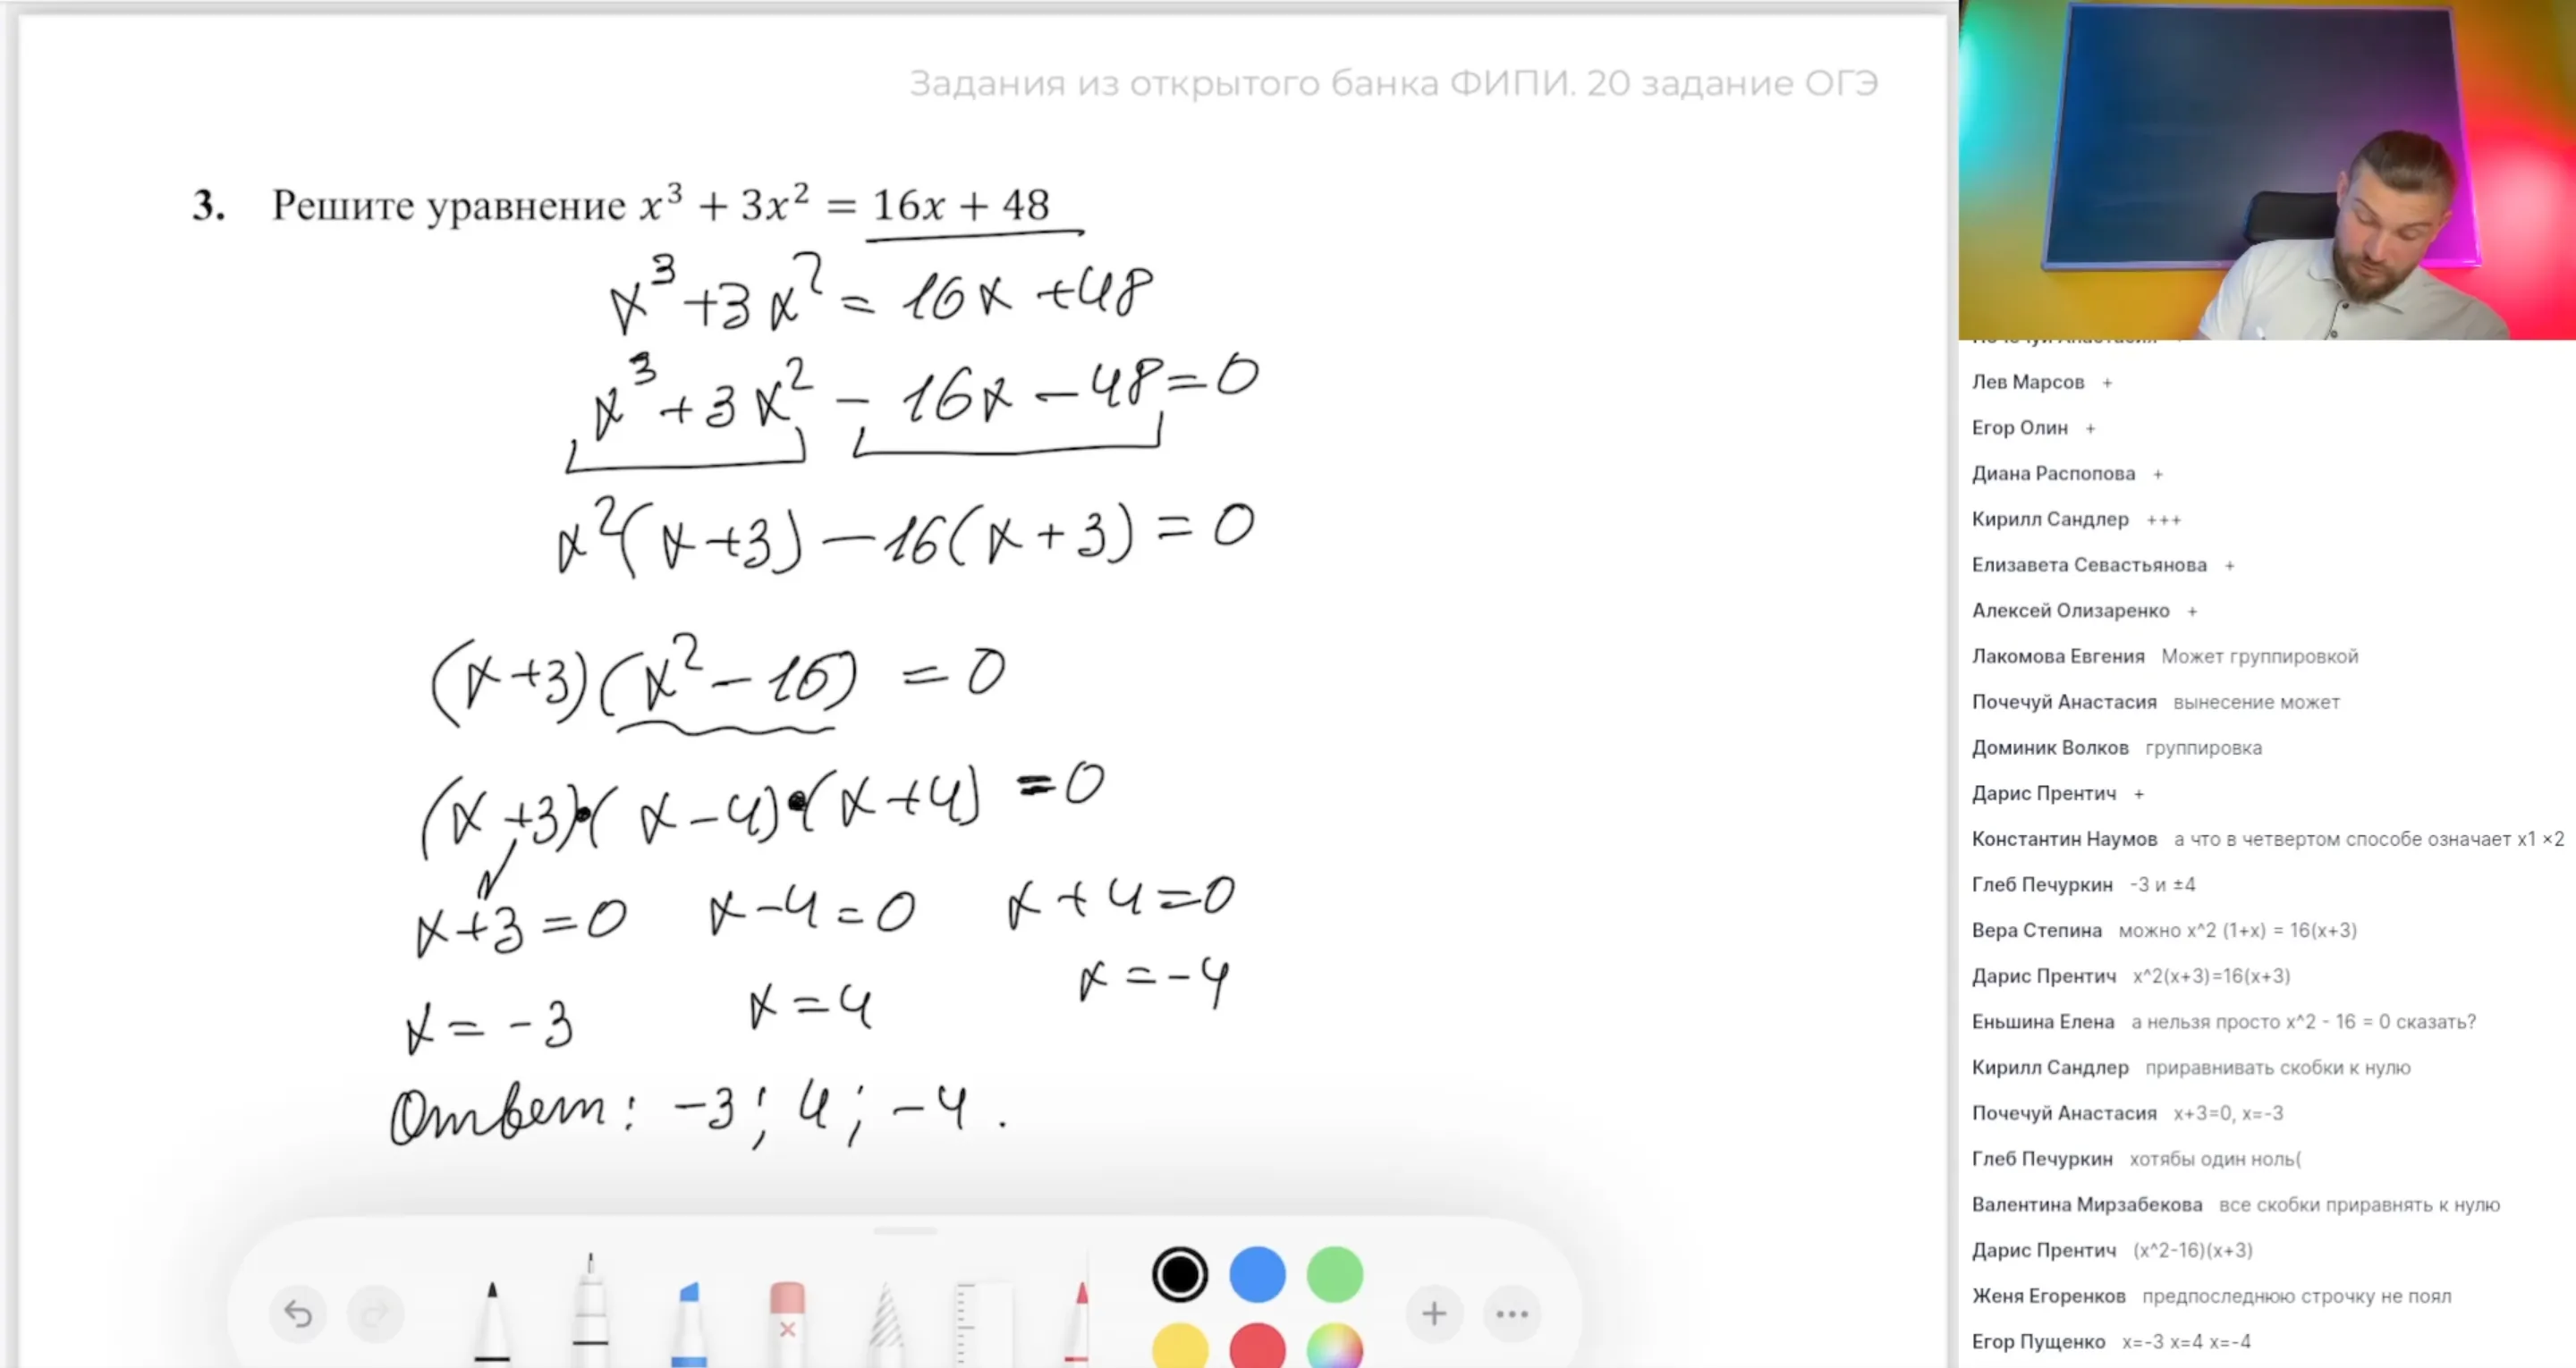 Задания из открытого банка ФИПИ. 20 задание ОГЭ
3. Решите уравнение x³ + 3x² = 16x + 48
x³ + 3x² = 16x + 48
x³ + 3x² − 16x − 48 = 0
x²(x+3) − 16(x+3) = 0
(x+3)(x² − 16) = 0
(x+3)·(x−4)·(x+4) = 0
x+3=0 x−4=0 x+4=0
x = −3 x = 4 x = −4
Ответ: −3; 4; −4.
Лев Марсов +
Егор Олин +
Диана Распопова +
Кирилл Сандлер +++
Елизавета Севастьянова +
Алексей Олизаренко +
Лакомова Евгения Может группировкой
Почечуй Анастасия вынесение может
Доминик Волков группировка
Дарис Прентич +
Константин Наумов а что в четвертом способе означает x1 ×2
Глеб Печуркин -3 и ±4
Вера Степина можно x^2 (1+x) = 16(x+3)
Дарис Прентич x^2(x+3)=16(x+3)
Еньшина Елена а нельзя просто x^2 - 16 = 0 сказать?
Кирилл Сандлер приравнивать скобки к нулю
Почечуй Анастасия x+3=0, x=-3
Глеб Печуркин хотябы один ноль(
Валентина Мирзабекова все скобки приравнять к нулю
Дарис Прентич (x^2-16)(x+3)
Женя Егоренков предпоследнюю строчку не поял
Егор Пущенко x=-3 x=4 x=-4